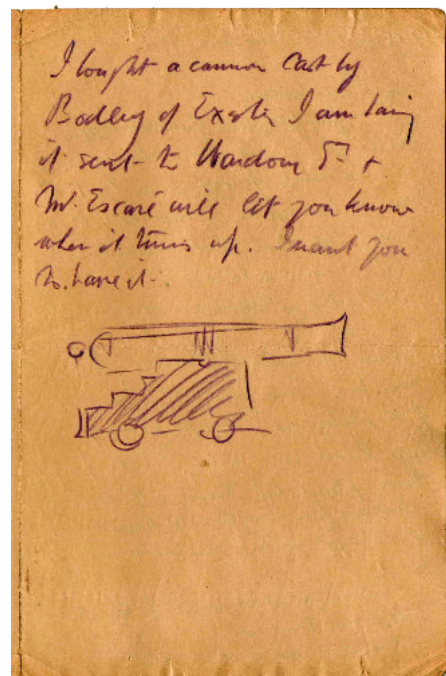 I bought a cannon cast by
Bodley of Exeter I am having
it sent to Wardour St. +
Mr. Escaré will let you know
when it turns up. I want you
to have it.